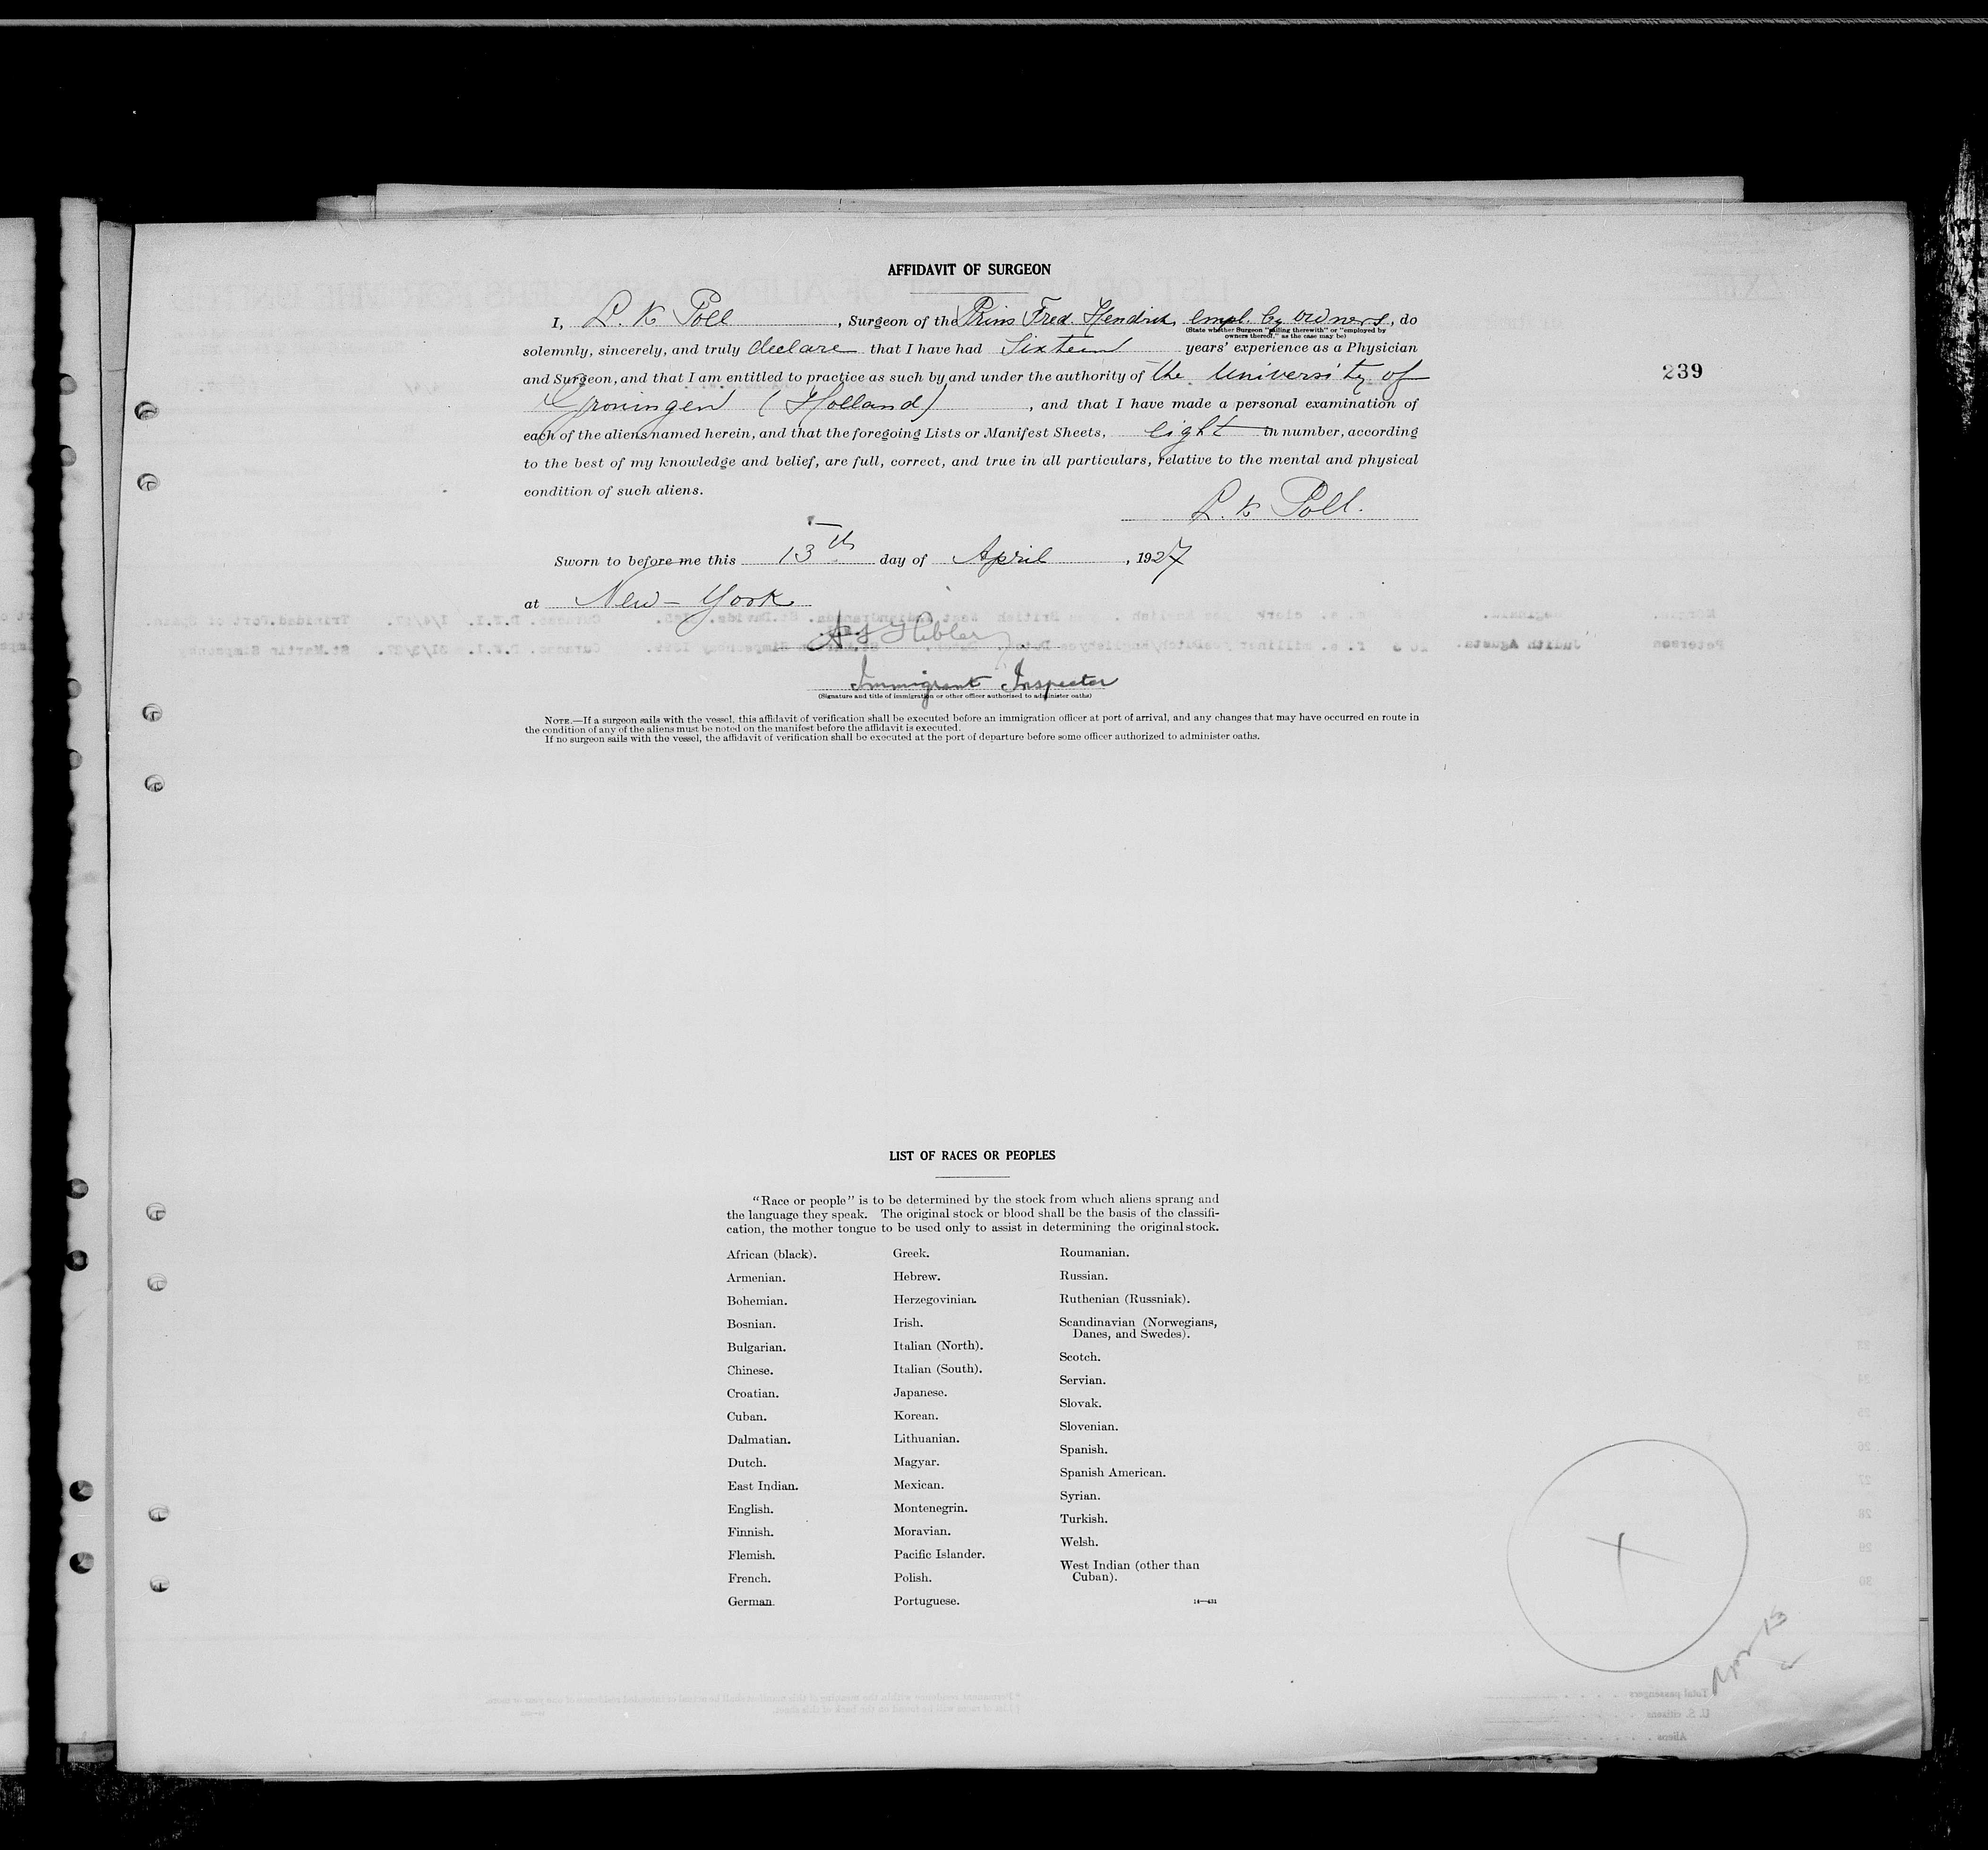 AFFIDAVIT OF SURGEON
I, L. K Poll, Surgeon of the Prins Fred. Hendrik empl. by owners, do
(State whether Surgeon "sailing therewith" or "employed by
owners thereof," as the case may be)
solemnly, sincerely, and truly declare that I have had Sixteen years' experience as a Physician
239
and Surgeon, and that I am entitled to practice as such by and under the authority of the University of
Groningen (Holland), and that I have made a personal examination of
each of the aliens named herein, and that the foregoing Lists or Manifest Sheets, eight in number, according
to the best of my knowledge and belief, are full, correct, and true in all particulars, relative to the mental and physical
condition of such aliens.
L. K Poll.
Sworn to before me this 13th day of April, 1927
at New-York
Immigrant Inspector
(Signature and title of immigration or other officer authorized to administer oaths)
NOTE.—If a surgeon sails with the vessel, this affidavit of verification shall be executed before an immigration officer at port of arrival, and any changes that may have occurred en route in
the condition of any of the aliens must be noted on the manifest before the affidavit is executed.
If no surgeon sails with the vessel, the affidavit of verification shall be executed at the port of departure before some officer authorized to administer oaths.
LIST OF RACES OR PEOPLES
"Race or people" is to be determined by the stock from which aliens sprang and
the language they speak. The original stock or blood shall be the basis of the classifi-
cation, the mother tongue to be used only to assist in determining the original stock.
African (black).
Armenian.
Bohemian.
Bosnian.
Bulgarian.
Chinese.
Croatian.
Cuban.
Dalmatian.
Dutch.
East Indian.
English.
Finnish.
Flemish.
French.
German.
Greek.
Hebrew.
Herzegovinian.
Irish.
Italian (North).
Italian (South).
Japanese.
Korean.
Lithuanian.
Magyar.
Mexican.
Montenegrin.
Moravian.
Pacific Islander.
Polish.
Portuguese.
Roumanian.
Russian.
Ruthenian (Russniak).
Scandinavian (Norwegians,
Danes, and Swedes).
Scotch.
Servian.
Slovak.
Slovenian.
Spanish.
Spanish American.
Syrian.
Turkish.
Welsh.
West Indian (other than
Cuban).
14—431